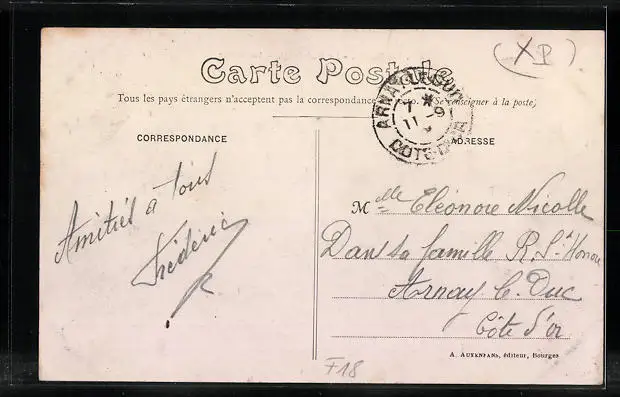 (XP)
Carte Postale
Tous les pays étrangers n'acceptent pas la correspondance au recto. (Se renseigner à la poste)
ARNAY-LE-DUC
7 *
11 - 9
COTE-D'OR
CORRESPONDANCE
ADRESSE
Amitiés a tous
Frédéric
Melle Eléonore Nicolle
Dans sa famille R. St Honoré
Arnay L. Duc
Côte d'or
A. AUXENFANS, éditeur, Bourges
F18